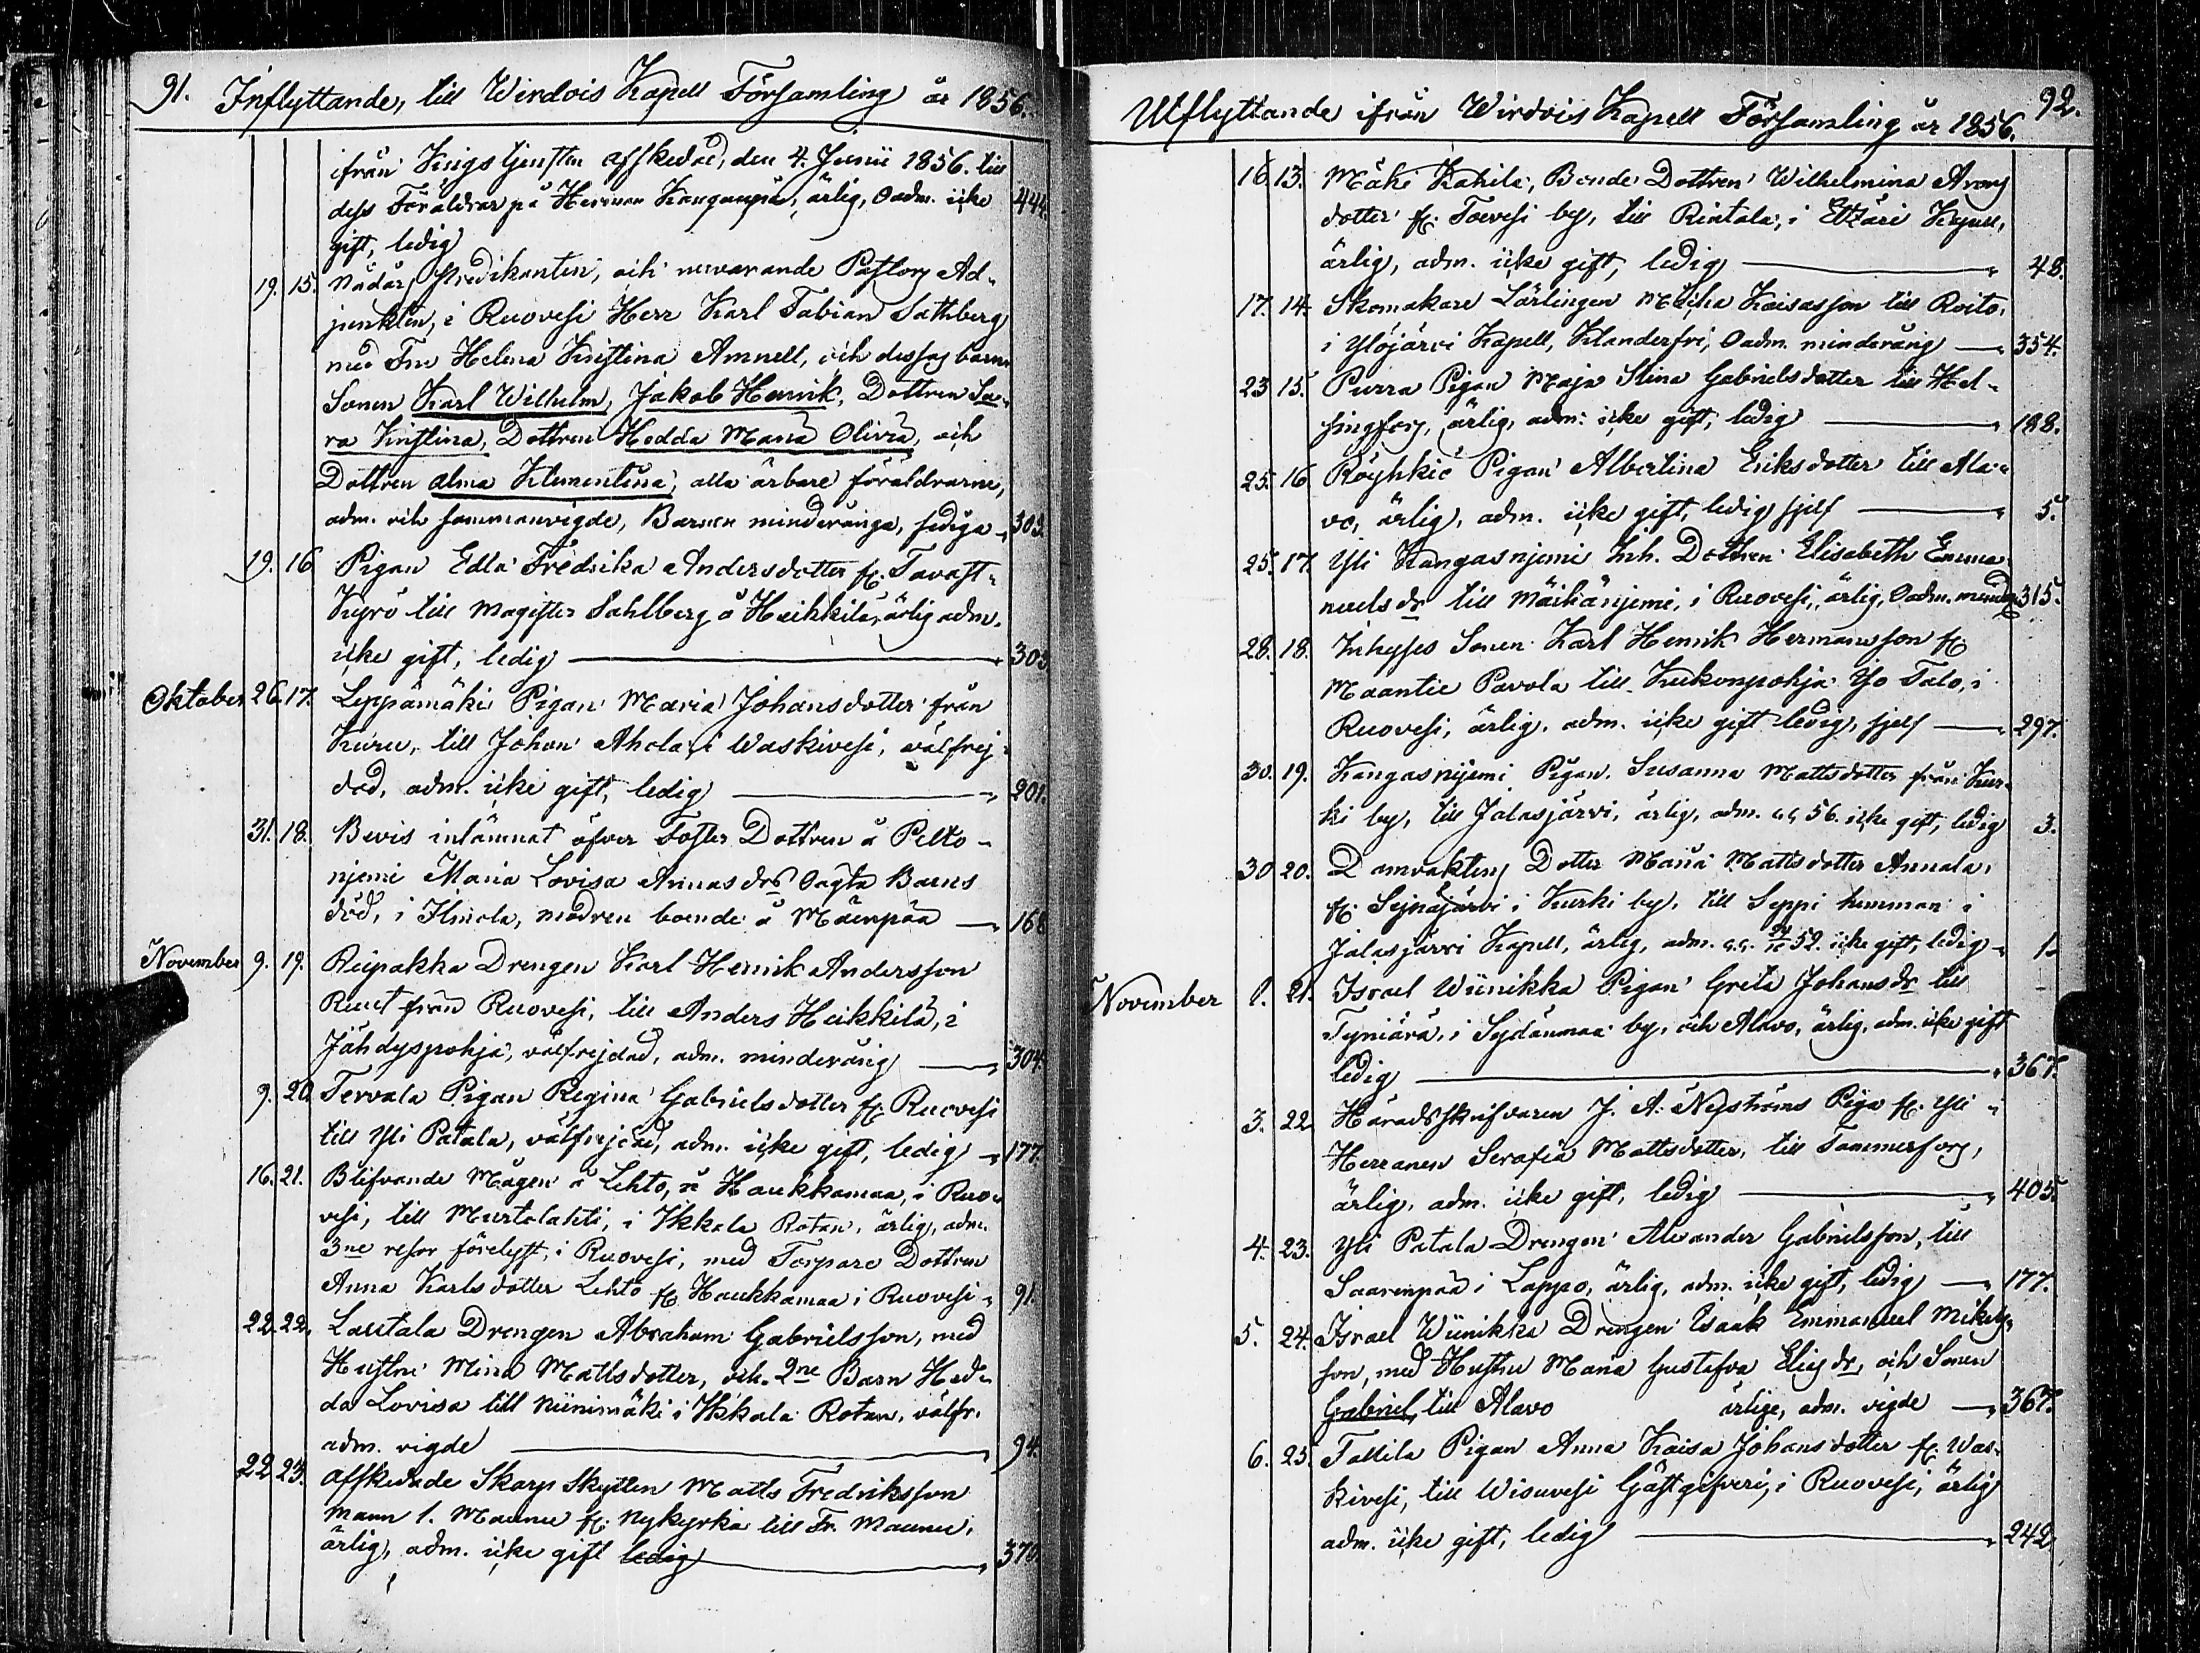 91. Inflyttande, till Wirdois Kapell Församling år 1856.
ifrån Krigstjensten affskedad, den 4. Junii 1856. till
dess Föräldrar på Herman Kangaspää, ärlig, Oadm. icke 444.
gift, ledig
19. 15. Nådårs Predikanten, och nuvarande Pastors Ad-
junkten, i Ruovesi Herr Karl Fabian Sahlberg
med Fru Helena Kristina Amnell, och dessas barn
Sonen Karl Wilhelm, Jakob Henrik, Dottren Sa-
ra Kristina, Dottren Hedda Maria Olivia, och
Dottren Alma Klementina, alla ärbare föräldrarne,
adm. och sammanvigde, Barnen minderåriga, lediga 303.
19. 16 Pigan Edla Fredrika Andersdotter fr. Tavast-
Kyrö till Magister Sahlberg å Heikkilä, ärlig adm.
icke gift, ledig 303
Oktober 26. 17. Leppämäki Pigan Maria Johansdotter från
Kuru, till Johan Ahola, i Waskivesi, välfrej-
dad, adm. icke gift, ledig 201.
31. 18. Bevis inlämnat öfver Foster Dottren å Pelto-
njemi Maria Lovisa Annasdrs Oägta Barns
död, i Ilmola, modren boende å Mäenpää 168
November 9. 19. Riipakka Drengen Karl Henrik Andersson
Ruut från Ruovesi, till Anders Heikkilä, i
Jähdyspohja, välfrejdad, adm. minderårig 304.
9. 20 Tervala Pigan Regina Gabrielsdotter fr. Ruovesi
till Yli Patala, välfrejdad, adm. icke gift, ledig 177.
16. 21. Blifvande Mågen å Lehto, å Haukkamaa, i Ruo-
vesi, till Murtolahti, i Ikkala Rotan, ärlig, adm.
3ne resor förelyst, i Ruovesi, med Torpare Dottren
Anna Karlsdotter Lehto fr. Haukkamaa i Ruovesi 91.
22. 22. Lautala Drengen Abraham Gabrielsson, med
Hustru Mina Mattsdotter, och 2ne Barn Hed-
da Lovisa till Niinimäki i Ikkala Rotan, välfr.
adm. vigde 94.
22 23. Affskedade Skarp Skytten Matts Fredriksson
Mann l. Maunu fr. Nykyrka till Fr. Maunu,
ärlig, adm. icke gift ledig 370.
Utflyttande ifrån Wirdois Kapell Församling år 1856. 92.
16. 13. Mäki Kahila, Bonde Dottren Wilhelmina Arons
dotter fr. Toivesi by, till Rintala, i Etzäri Kapell,
ärlig, adm. icke gift, ledig 48.
17. 14. Skomakare Lärlingen Micha Kaisasson till Roito,
i Ylöjärvi Kapell, Klanderfri, Oadm. minderårig 354.
23 15. Purra Pigan Maja Stina Gabrielsdotter till Hel-
singfors, ärlig, adm. icke gift, ledig 188.
25. 16 Röyhkiö Pigan Albertina Eriksdotter till Ala-
vo, ärlig, adm. icke gift, ledig sjelf 5.
25. 17. Yli Kangasnjemi Inh. Dottren Elisabeth Emma-
nuelsdr till Mäihänjemi, i Ruovesi, ärlig, Oadm. minderg 315.
28. 18. Inhyses Sonen Karl Henrik Hermansson fr.
Maantie Pavola till Kukonpohja Yo Talo, i
Ruovesi, ärlig, adm. icke gift ledig, sjelf 297.
30. 19. Kangasnjemi Pigan Susanna Mattsdotter från Kur-
ki by, till Jalasjärvi, ärlig, adm. a.c. 56. icke gift, ledig 3.
30 20. Damvaktens Dotter Maria Mattsdotter Annala,
fr. Seinäjärvi i Kurki by, till Seppi hemman i
Jalasjärvi Kapell, ärlig, adm. a.c. 52. icke gift, ledig 1.
November 1. 21. Israel Wiinikka Pigan Greta Johansdr till
Tyniärä, i Sydänmaa by, och Alavo, ärlig, adm. icke gift
ledig 367.
3. 22. Häradsskrifvaren J. A. Nyströms Piga fr. Yli
Herranen Serafia Mattsdotter, till Tammerfors,
ärlig, adm. icke gift, ledig 405.
4. 23. Yli Patala Drengen Alexander Gabrielsson, till
Saarenpää i Lappo, ärlig, adm. icke gift, ledig 177.
5. 24. Israel Wiinikka Drengen Isaak Emmanuel Mikels-
son, med Hustru Maria Gustafva Eliesdr, och Sonen
Gabriel, till Alavo ärlige, adm. vigde 367.
6. 25. Tallila Pigan Anna Kaisa Johansdotter fr. Was-
kivesi, till Wisuvesi Gästgifveri, i Ruovesi, ärlig
adm. icke gift, ledig 242